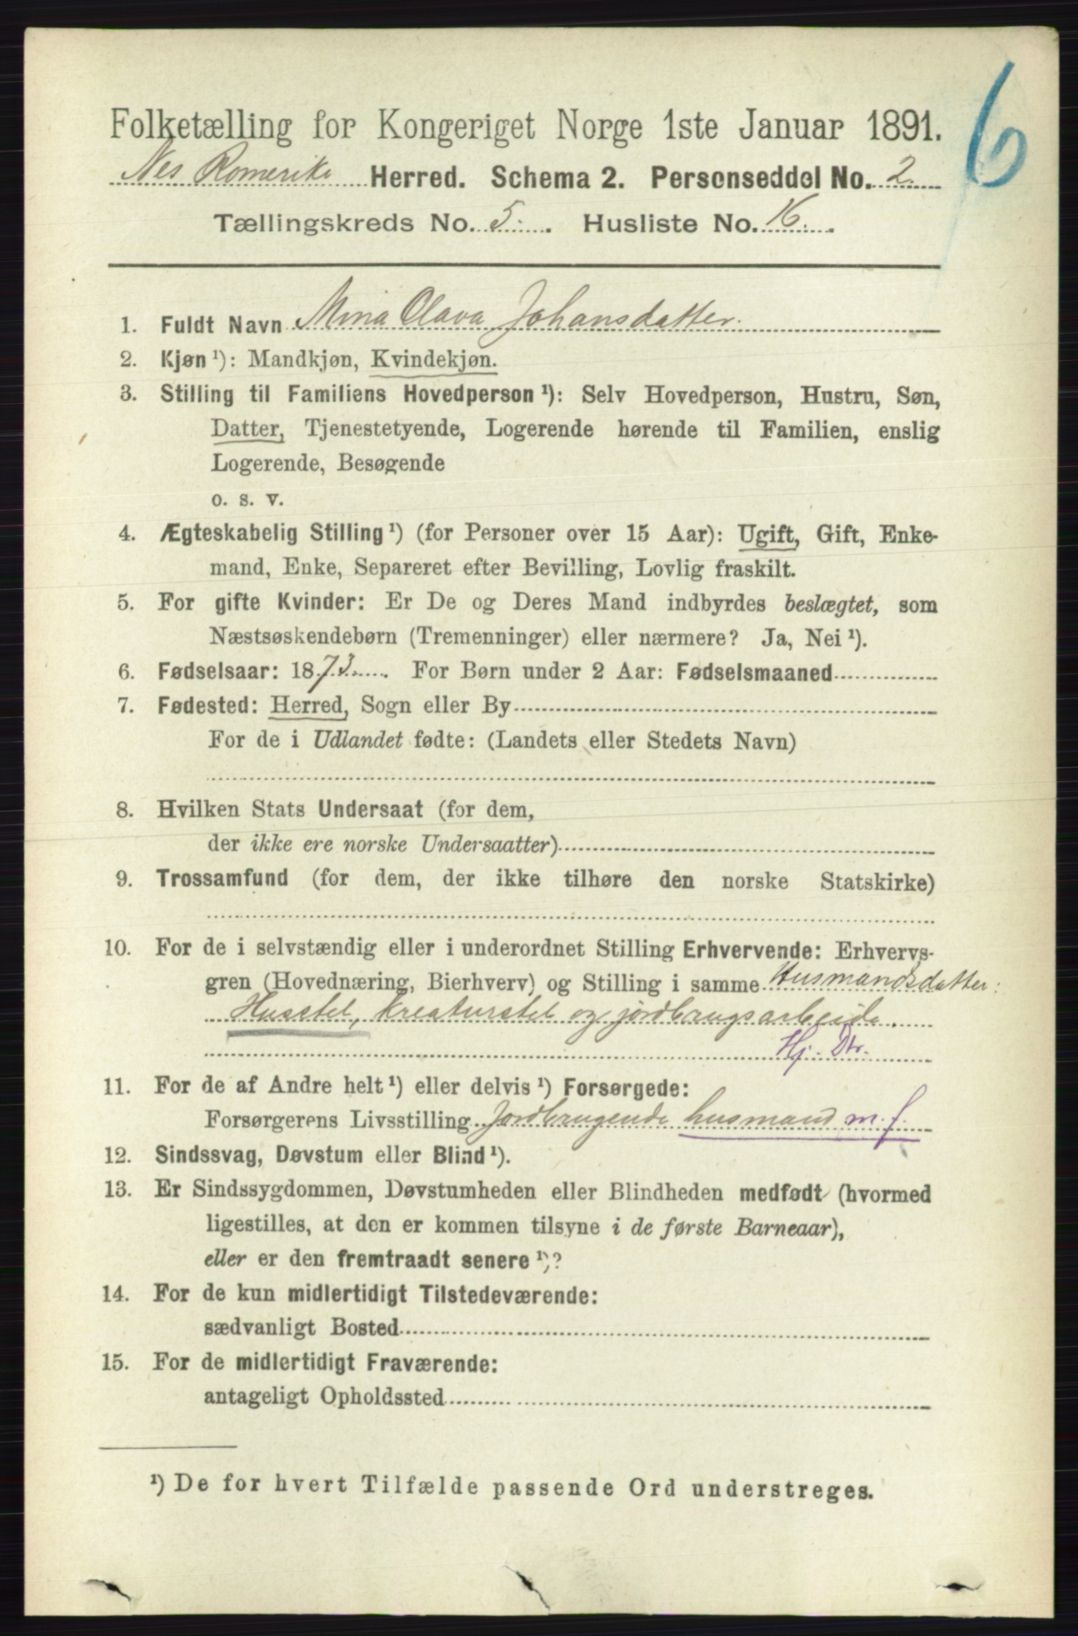 6
Folketælling for Kongeriget Norge 1ste Januar 1891.
Nes Romerike Herred. Schema 2. Personseddel No. 2.
Tællingskreds No. 5. Husliste No. 16.
1. Fuldt Navn Mina Olava Johansdatter.
2. Kjøn ¹): Mandkjøn, Kvindekjøn.
3. Stilling til Familiens Hovedperson ¹): Selv Hovedperson, Hustru, Søn,
Datter, Tjenestetyende, Logerende hørende til Familien, enslig
Logerende, Besøgende
o. s. v.
4. Ægteskabelig Stilling ¹) (for Personer over 15 Aar): Ugift, Gift, Enke-
mand, Enke, Separeret efter Bevilling, Lovlig fraskilt.
5. For gifte Kvinder: Er De og Deres Mand indbyrdes beslægtet, som
Næstsøskendebørn (Tremenninger) eller nærmere? Ja, Nei ¹).
6. Fødselsaar: 1873. For Børn under 2 Aar: Fødselsmaaned
7. Fødested: Herred, Sogn eller By
For de i Udlandet fødte: (Landets eller Stedets Navn)
8. Hvilken Stats Undersaat (for dem,
der ikke ere norske Undersaatter)
9. Trossamfund (for dem, der ikke tilhøre den norske Statskirke)
10. For de i selvstændig eller i underordnet Stilling Erhvervende: Erhvervs-
gren (Hovednæring, Bierhverv) og Stilling i samme Husmandsdatter:
Husstel, kreaturstel og jordbrugsarbeide.
Hj. Dtr.
11. For de af Andre helt ¹) eller delvis ¹) Forsørgede:
Forsørgerens Livsstilling Jordbrugende husmand m. f.
12. Sindssvag, Døvstum eller Blind ¹).
13. Er Sindssygdommen, Døvstumheden eller Blindheden medfødt (hvormed
ligestilles, at den er kommen tilsyne i de første Barneaar),
eller er den fremtraadt senere ¹)?
14. For de kun midlertidigt Tilstedeværende:
sædvanligt Bosted
15. For de midlertidigt Fraværende:
antageligt Opholdssted
¹) De for hvert Tilfælde passende Ord understreges.